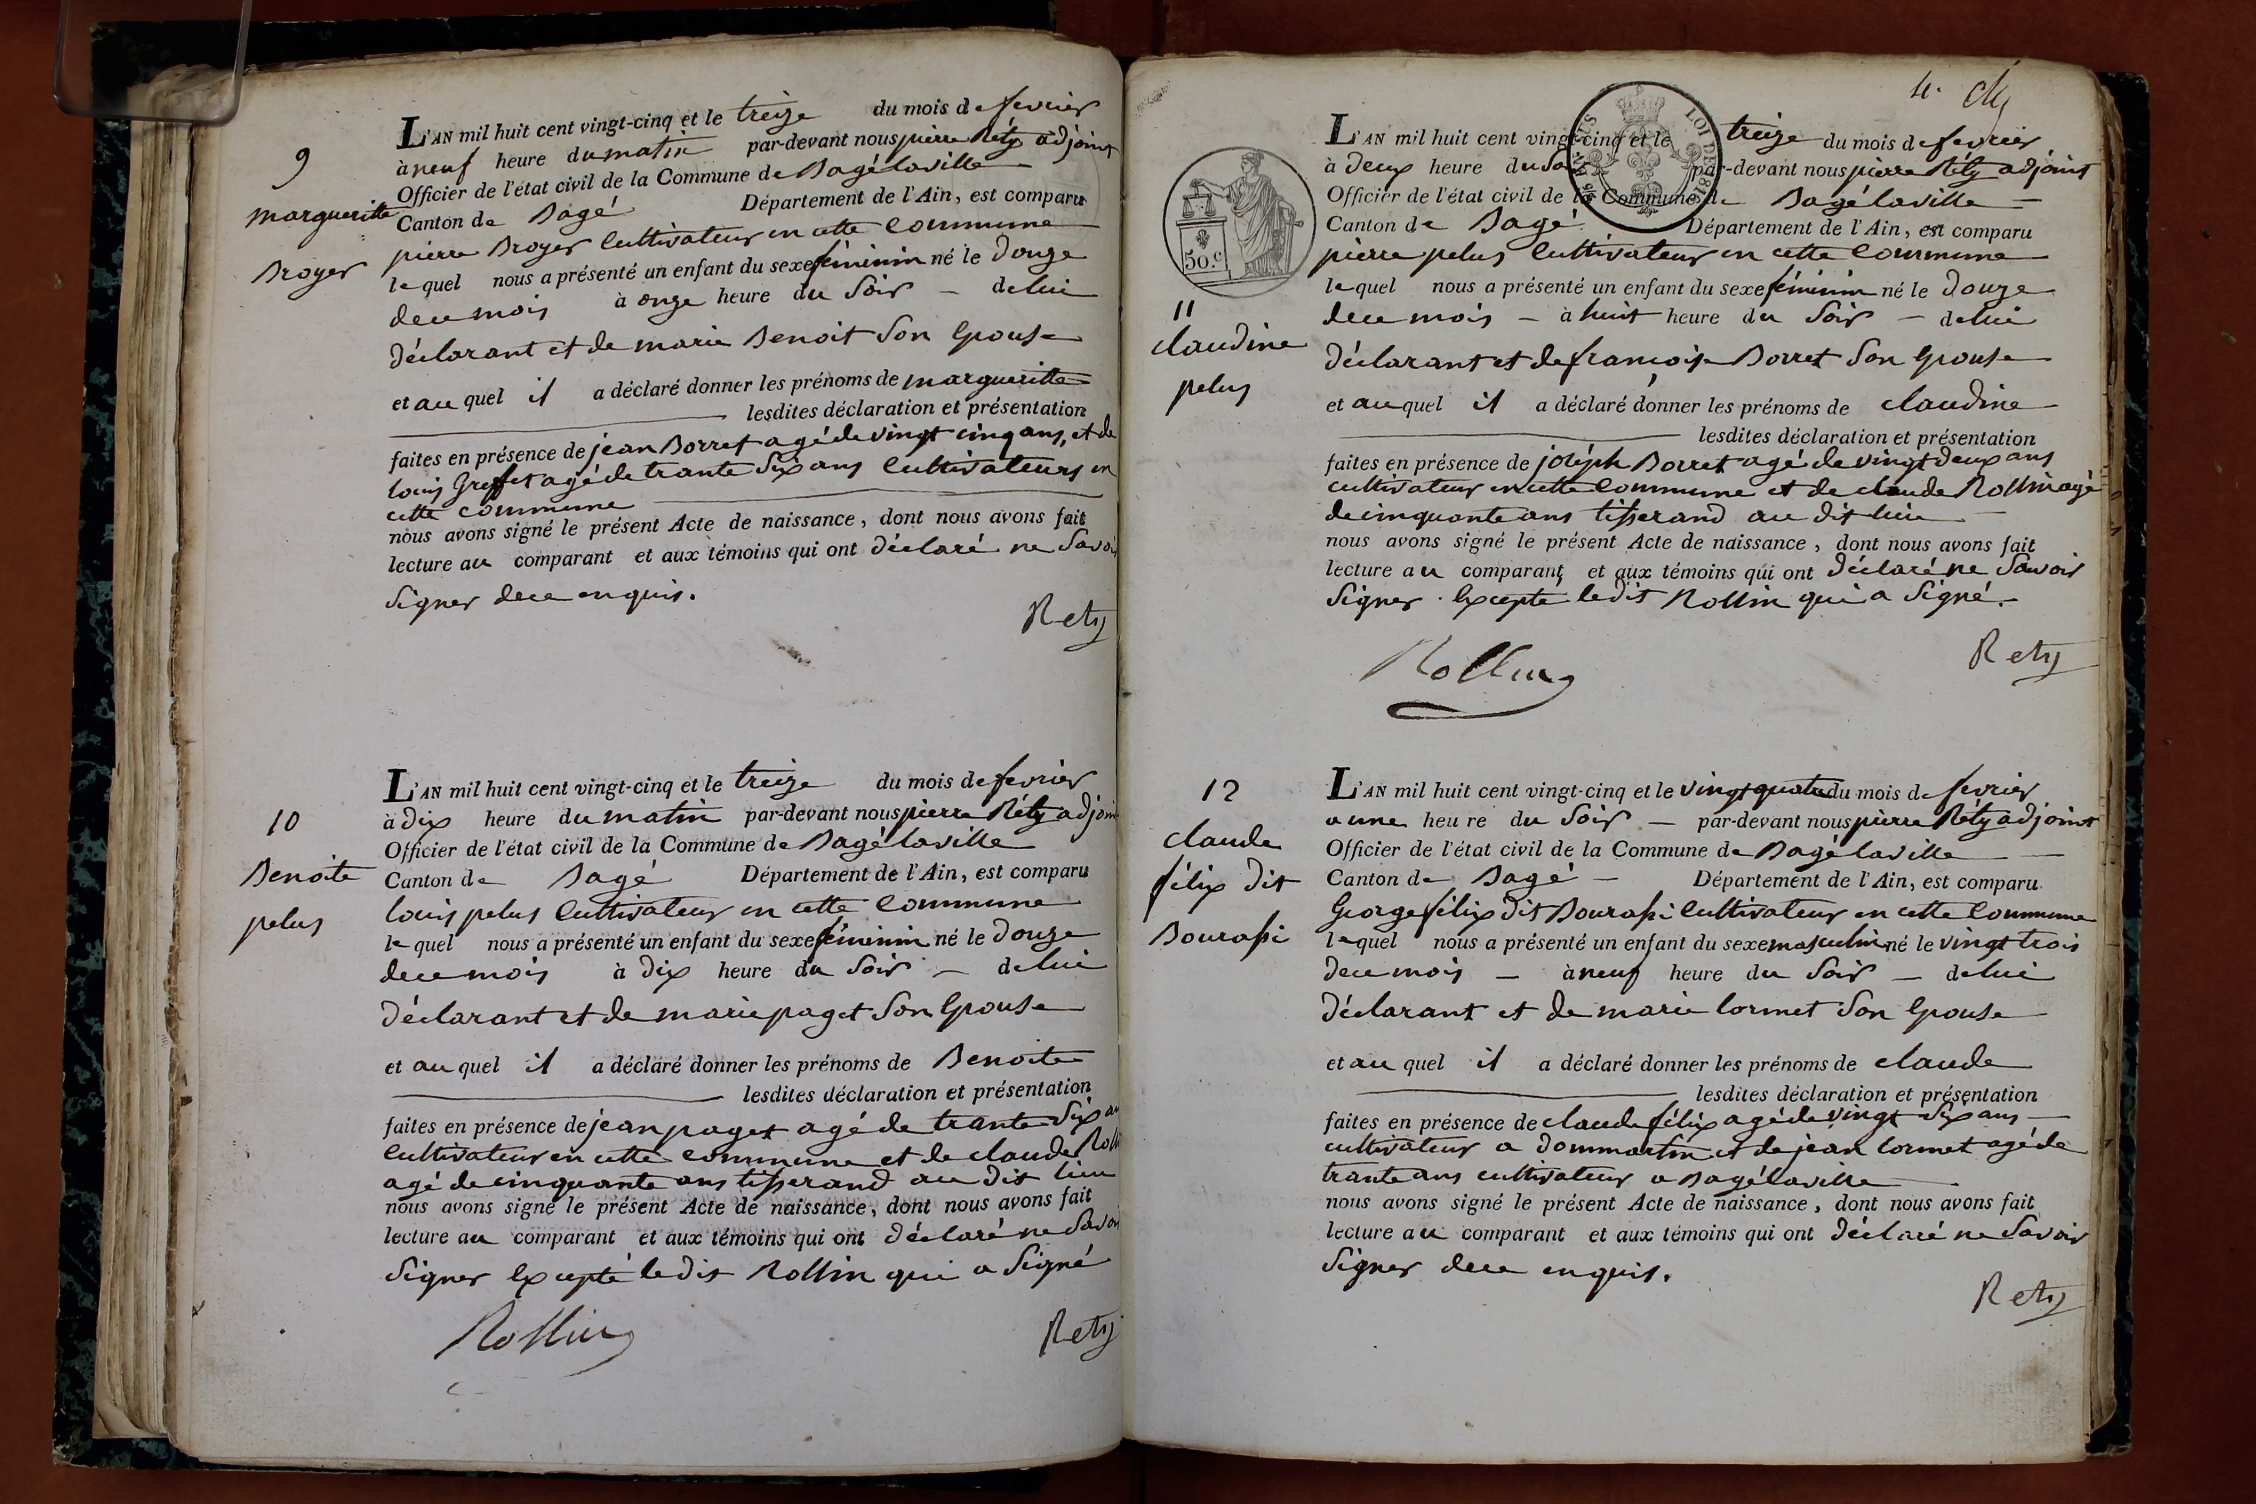 9
margueritte
Broyer
L'AN mil huit cent vingt-cinq et le treize du mois de fevrier
à neuf heure du matin par-devant nous pierre Réty adjoint
Officier de l'état civil de la Commune de Bagé laville
Canton de Bagé Département de l'Ain, est comparu
pierre Broyer Cultivateur en cette Commune
lequel nous a présenté un enfant du sexe féminin né le Douze
du ce mois à onze heure du Soir de lui
déclarant et de marie Benoit Son Epouse
et au quel il a déclaré donner les prénoms de margueritte
lesdites déclaration et présentation
faites en présence de jean Borret agé de vingt cinq ans, et de
louis Greffet agé de trante Six ans Cultivateurs en
cette commune
nous avons signé le présent Acte de naissance, dont nous avons fait
lecture au comparant et aux témoins qui ont déclaré ne Savoir
Signer de ce enquis.
Rety
10
Benoite
pelus
L'AN mil huit cent vingt-cinq et le treize du mois de fevrier
à dix heure du matin par-devant nous pierre Réty adjoint
Officier de l'état civil de la Commune de Bagé laville
Canton de Bagé Département de l'Ain, est comparu
louis pelus Cultivateur en cette Commune
lequel nous a présenté un enfant du sexe féminin né le Douze
du ce mois à Dix heure du Soir de lui
déclarant et de marie paget Son Epouse
et au quel il a déclaré donner les prénoms de Benoite
lesdites déclaration et présentation
faites en présence de jean paget agé de trante Six ans
Cultivateur en cette commune et de claude Rollin
agé de cinquante ans tisserand au dit lieu
nous avons signé le présent Acte de naissance, dont nous avons fait
lecture au comparant et aux témoins qui ont déclaré ne Savoir
Signer Excepté le dit Rollin qui a Signé
Rollin
Rety
4.
50.c
LOI DE 1816
11
claudine
pelus
L'AN mil huit cent vingt-cinq et le treize du mois de fevrier
à deux heure du Soir par-devant nous pierre Réty adjoint
Officier de l'état civil de la Commune de Bagé laville
Canton de Bagé Département de l'Ain, est comparu
pierre pelus Cultivateur en cette Commune
lequel nous a présenté un enfant du sexe féminin né le Douze
du ce mois à huit heure du Soir de lui
déclarant et de francoise Borret Son Epouse
et au quel il a déclaré donner les prénoms de claudine
lesdites déclaration et présentation
faites en présence de joséph Borret agé de vingt deux ans
cultivateur en cette Commune et de claude Rollin agé
de cinquante ans tisserand au dit lieu
nous avons signé le présent Acte de naissance, dont nous avons fait
lecture au comparant et aux témoins qui ont déclaré ne Savoir
Signer Excepte le dit Rollin qui a Signé.
Rollin
Rety
12
claude
félix dit
Bourassi
L'AN mil huit cent vingt-cinq et le vingt quatre du mois de fevrier
a une heure du Soir par-devant nous pierre Réty adjoint
Officier de l'état civil de la Commune de Bagé laville
Canton de Bagé Département de l'Ain, est comparu
George félix dit Bourassi Cultivateur en cette Commune
lequel nous a présenté un enfant du sexe masculin né le vingt trois
du ce mois à neuf heure du Soir de lui
déclarant et de marie lormet Son Epouse
et au quel il a déclaré donner les prénoms de claude
lesdites déclaration et présentation
faites en présence de claude félix agé de vingt Six ans
cultivateur a dommartin et de jean lormet agé de
trante ans cultivateur a Bagé laville
nous avons signé le présent Acte de naissance, dont nous avons fait
lecture au comparant et aux témoins qui ont déclaré ne Savoir
Signer de ce enquis.
Rety